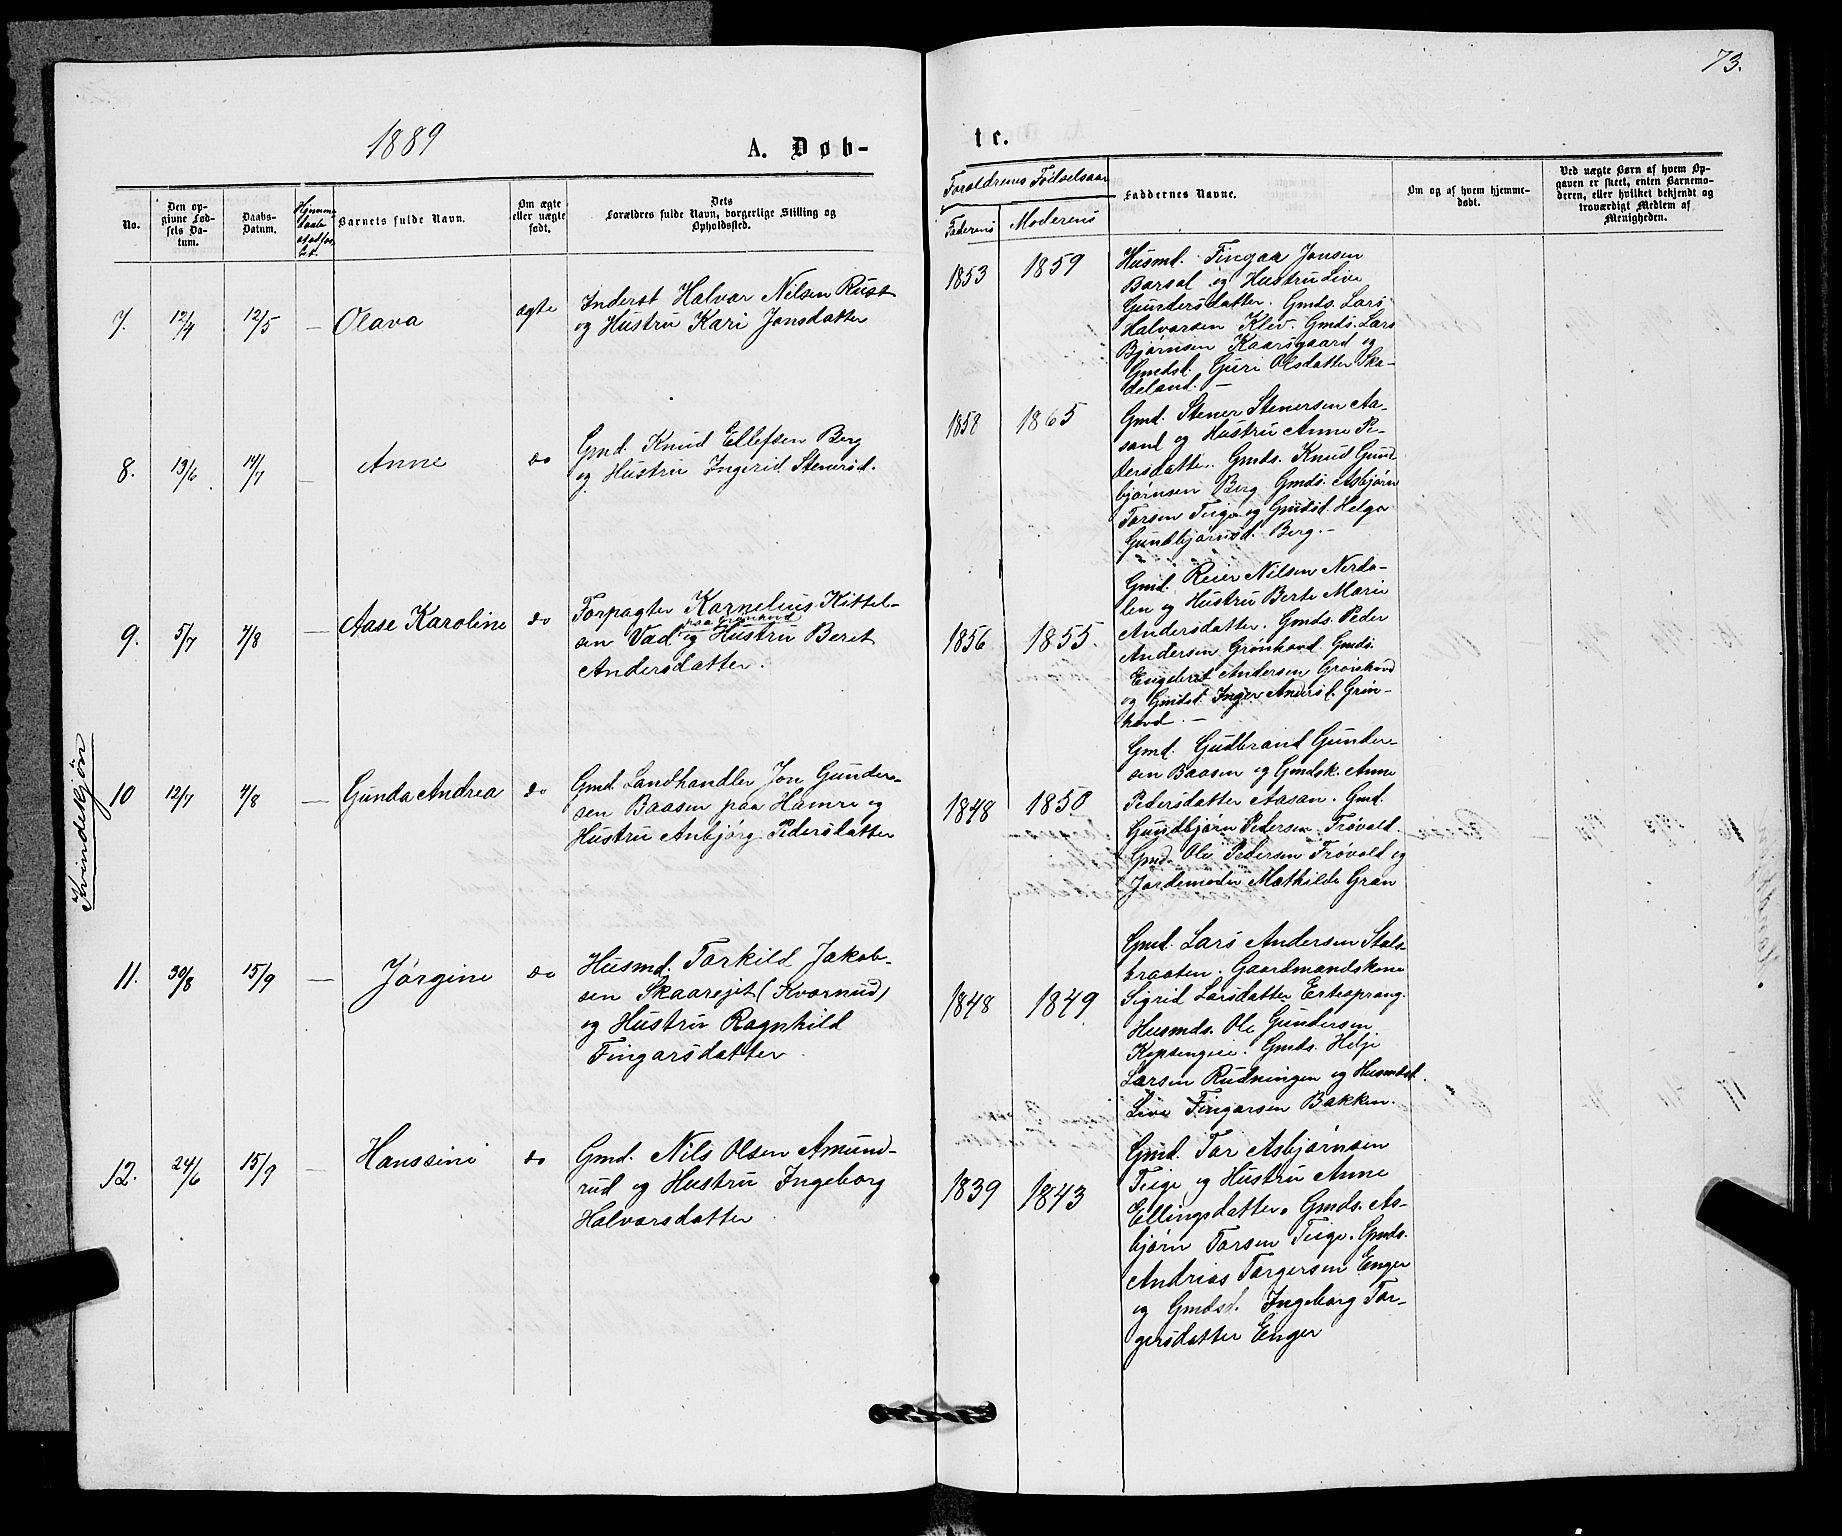 73.
1889
A. Døb-
te.
No.
Den op-
givne Fød-
sels Da-
tum.
Daabs-
Datum.
Barnets fulde Navn.
Om ægte
eller uægte
født.
Dets
Forældres fulde Navn, borgerlige Stilling og
Opholdssted.
Forældrenes Fødselsaar
Faderens
Moderens
Faddernes Navne.
Om og af hvem hjemme-
døbt.
Ved uægte Børn af hvem Op-
gaven er skeet, enten Barnemo-
deren, eller hvilket bekjendt og
troværdigt Medlem af
Menigheden.
Kvindekjøn
7.
12/4
12/5
—
Olava
ægte
Inderst Halvor Nilsen Rust
og Hustru Kari Jonsdatter
1853
1859
Husmd. Fingar Jonsen
Barsal og Hustru Live
Gundersdatter. Gmds. Lars
Halvorsen Klev. Gmds. Lars
Bjørnsen Kaarsgaard og
Gmdsd. Guri Olsdatter Ska-
deland. —
8.
19/6
14/7
—
Anne
do
Gmd. Knud Ellefsen Berg
og Hustru Ingerid Stenersd.
1858
1865
Gmd. Stener Stenersen Aa-
sand og Hustru Anne P-
dersdatter. Gmds. Knud Gund-
bjørnsen Berg. Gmds. Asbjørn
Torsen Teige og Gmdsd. Helga
Gundbjørnsd. Berg. —
9.
5/7
4/8
—
Aase Karoline
do
Forpagter Kornelius Kittel-
sen Vad paa Grønhovd og Hustru Beret
Andersdatter.
1856
1855.
Gmd. Reier Nilsen Nerda-
len og Hustru Berte Marie
Andersdatter. Gmds. Peder
Andersen Grønhovd. Gmds.
Engebret Andersen Grønhovd
og Gmdsd. Inger Andersd. Grøn-
hovd. —
10
12/7
4/8
—
Gunda Andrea
do
Gmd. Landhandler Jon Gunder-
sen Baasen paa Hamre og
Hustru Anbjørg Pedersdatter
1848
1850
Gmd. Gudbrand Gunder-
sen Baasen og Gmdsk. Anne
Pedersdatter Aasan. Gmd.
Gundbjørn Pedersen Trøvold.
Gmd. Ole Pedersen Trøvold og
Jordemoder Mathilde Gran
11.
30/8
15/9
—
Jørgine
do
Husmd. Torkild Jakob-
sen Skaarejet (Kvornud)
og Hustru Ragnhild
Fingarsdatter.
1848
1849
Gmd. Lars Andersen Stals-
braaten. Gaardmandskone
Sigrid Larsdatter Ertesprang.
Husmds. Ole Gundersen
Kopsengeie. Gmds. Helje
Larsen Rudningen og Husmdsd.
Live Fingarsen Bakken.
12.
24/6
15/9
—
Hanssine
do
Gmd. Nils Olsen Amund-
rud og Hustru Ingeborg
Halvorsdatter
1839
1843
Gmd. Tor Asbjørnsen
Teige og Hustru Anne
Ellingsdatter. Gmds. As-
bjørn Torsen Teige. Gmds.
Andrias Torgersen Enger
og Gmdsd. Ingeborg Tor-
gersdatter Enger